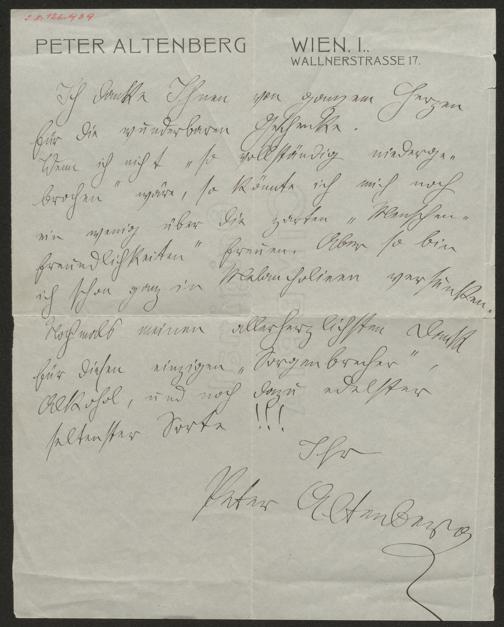 I.N. 126.909
PETER ALTENBERG WIEN, I.,
WALLNERSTRASSE 17.
Ich danke Ihnen von ganzem Herzen
für die wunderbaren Geschenke.
Wenn ich nicht „so vollständig niederge-
brochen" wäre, so könnte ich mich noch
ein wenig über die zarten „Menschen-
freundlichkeiten" freuen. Aber so bin
ich schon ganz in Melancholieen versunken.
Nochmals meinen allerherzlichsten Dank
für diesen einzigen „Sorgenbrecher",
Alkohol, und noch dazu edelster
seltenster Sorte !!!
Ihr
Peter Altenberg